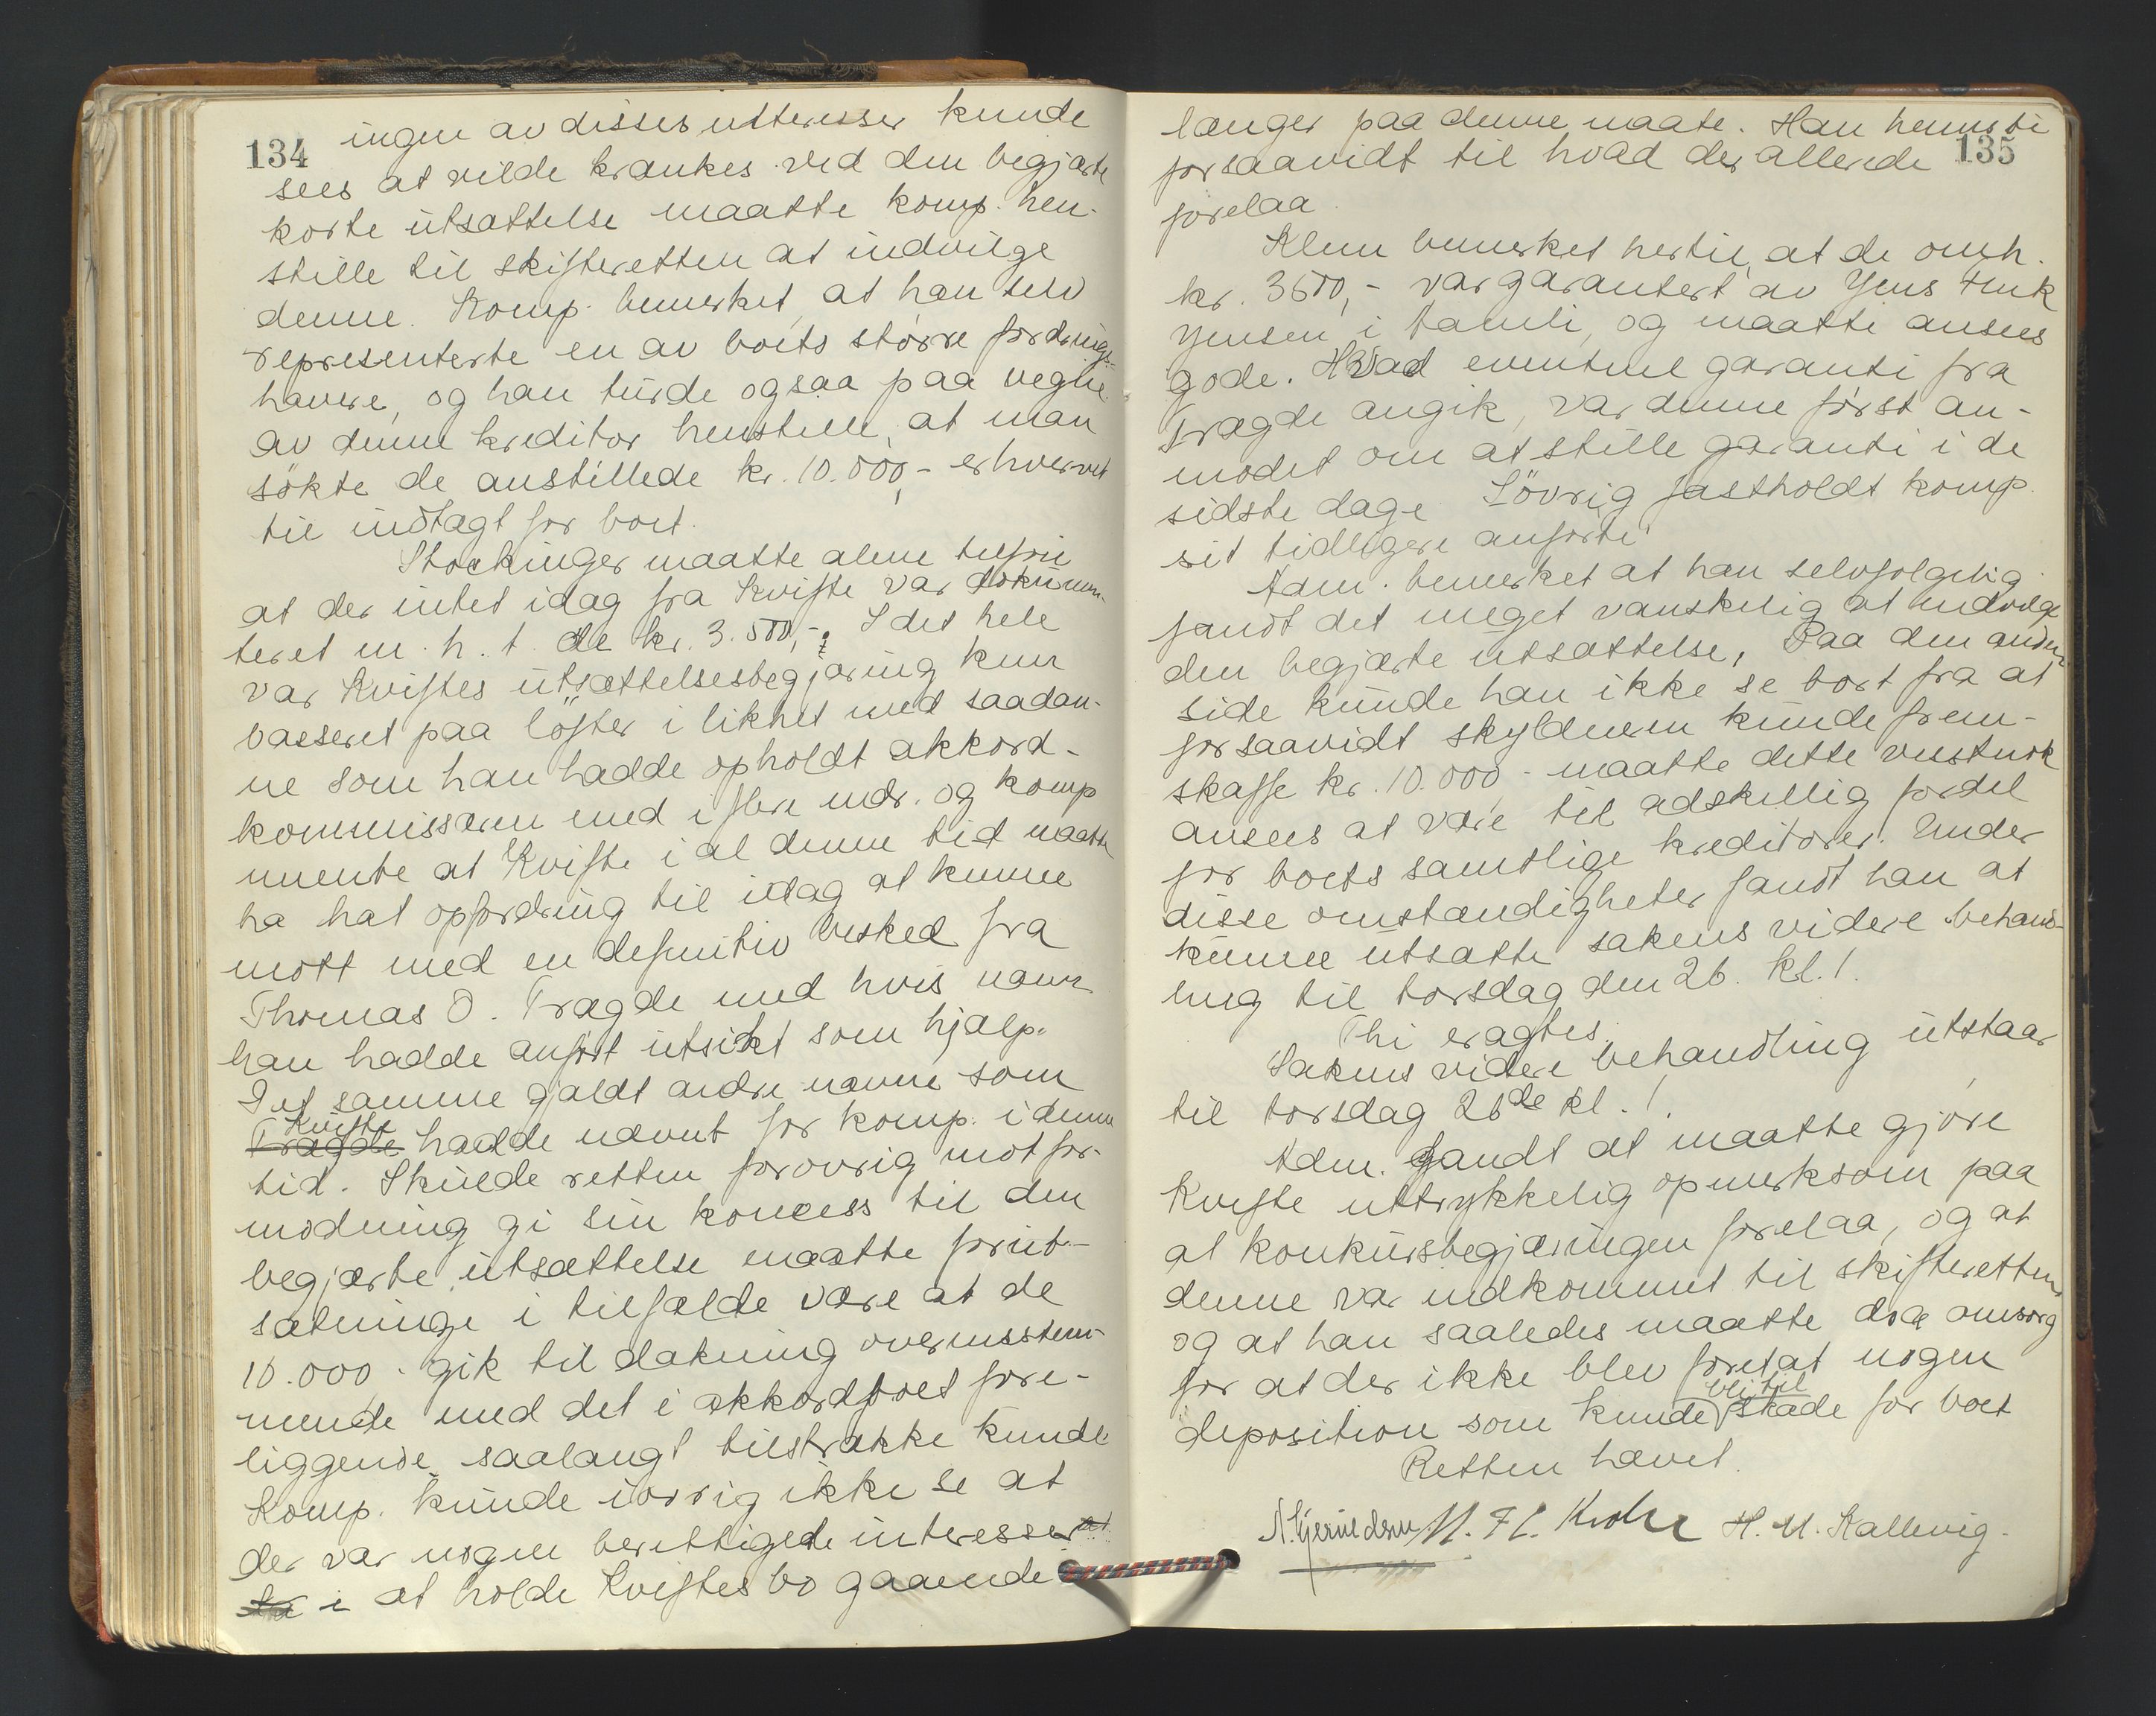 134
ingen av disses interesser kunde
sees at vilde krænkes ved den begjærte
korte utsættelse maatte komp. hen-
stille til skifteretten at indvilge
denne. Komp. bemerket, at han selv
representerte en av boets større fordrings-
havere, og han turde ogsaa paa vegne
av denne kreditor henstille, at man
søkte de anstillede kr. 10.000,- erhvervet
til indtægt for boet.
Stockinger maatte alene tilføie
at der intet idag fra Kvifte var dokumen-
teret m. h. t. de kr. 3.500,-. I det hele
var Kviftes utsættelsesbegjæring kun
basseret paa löfter i likhet med saadan-
ne som han hadde opholdt akkord-
kommissæren med i flere mdr. og komp
mente at Kvifte i al denne tid maatte
ha hat opfordring til idag at kunne
møtt med en definitiv besked fra
Thomas O. Trægde med hvis navn
han hadde anført utsikt som hjælp.
Det samme gjaldt andre navne som
Kvifte
Trægde hadde nævnt for komp. i denne
tid. Skulde retten forøvrig mot for-
modning gi sin koncess til den
begjærte utsættelse maatte forut-
sætninge i tilfælde være at de
10.000,- gik til dækning overensstem-
mende med det i akkordboet fore-
liggende saalangt tilstrække kunde
Komp. kunde iøvrig ikke se at
der var nogen berettigede interesser at
i at holde Kviftes bo gaaende
135
længer paa denne maate. Han henviste
forsaavidt til hvad der allerede
forelaa.
Klem bemerket hertil, at de omh.
kr. 3500,- var garantert av Jens
Jensen i Tamli, og maatte ansees
gode. Hvad eventuel garanti fra
Trægde angik, var denne først an-
modet om at stille garanti i de
sidste dage. Iövrig fastholdt komp.
sit tidligere anførte
Adm. bemerket at han selvfølgelig
fandt det meget vanskelig at indvilge
den begjærte utsættelse, Paa den anden
side kunde han ikke se bort fra at
forsaavidt skyldneren kunde frem-
skaffe kr. 10.000,- maatte dette visstnok
ansees at være til adskillig fordel
for boets samtlige kreditorer. Under
disse omstændigheter fandt han at
kunne utsætte sakens videre behand-
ling til torsdag den 26. kl. 1.
Thi eragtes:
Sakens videre behandling utstaar
til torsdag 26de kl. 1.
Adm. fandt at maatte gjøre
Kvifte uttrykkelig opmerksom paa
at konkursbegjæringen forelaa, og at
denne var indkommet til skifteretten,
og at han saaledes maatte dra omsorg
for at der ikke blev foretat nogen
bli til
deposition som kunde skade for boet
Retten hævet.
N. Fl. Krohn H. M. Kallevig.